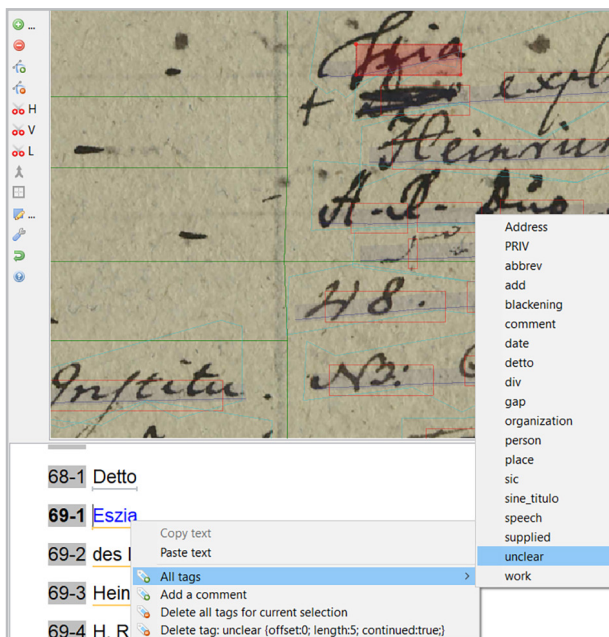 ...
H
V
L
...
+ expl
Heinrich
48.
NB:
Institu.
Address
PRIV
abbrev
add
blackening
comment
date
detto
div
gap
organization
person
place
sic
sine_titulo
speech
supplied
unclear
work
68-1 Detto
69-1 Eszia
69-2 des
69-3 Hein
69-4 H. R
Copy text
Paste text
All tags >
Add a comment
Delete all tags for current selection
Delete tag: unclear {offset:0; length:5; continued:true;}